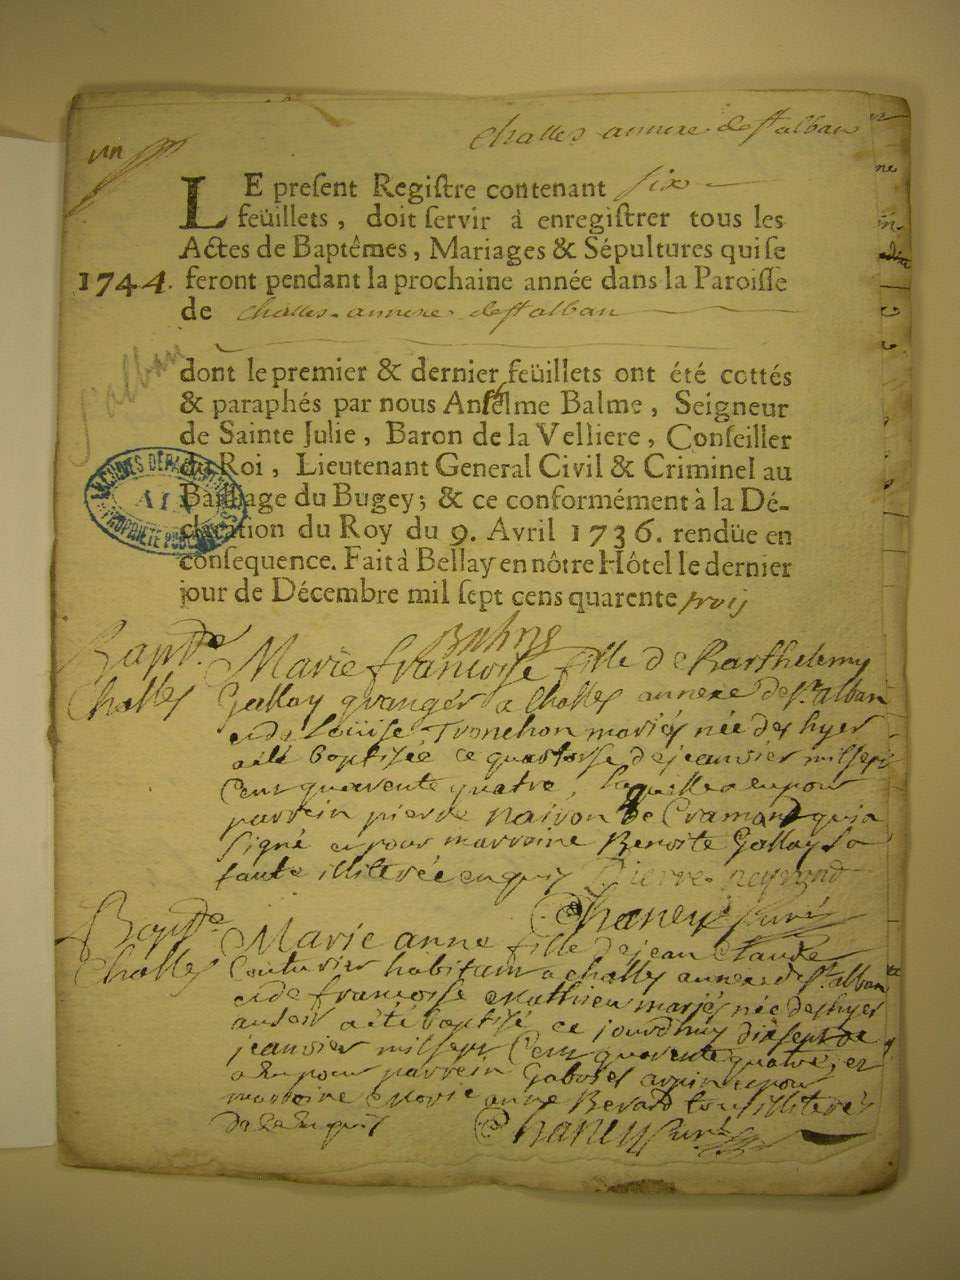 challes annexe de st alban
un
LE present Registre contenant six
feüillets, doit servir à enregistrer tous les
Actes de Baptêmes, Mariages & Sépultures qui se
1744. feront pendant la prochaine année dans la Paroisse
de challes annexe de st alban
St alban
dont le premier & dernier feüillets ont été cottés
& paraphés par nous Anselme Balme, Seigneur
de Sainte Julie, Baron de la Velliere, Conseiller
du Roi, Lieutenant General Civil & Criminel au
Bailliage du Bugey; & ce conformément à la Dé-
claration du Roy du 9. Avril 1736. rendüe en
consequence. Fait à Bellay en nôtre Hôtel le dernier
jour de Décembre mil sept cens quarente trois
ARCHIVES DÉPARTEMENTALES
AIN
PROPRIÉTÉ PUBLIQUE
Balme
Bapt.
Challes
Marie francoise fille de Barthelemy
Gallay granger a Challes annexe de st. alban
et de Loüise Tronchon mariés née des hyer
a été baptisée ce quatorse de jeanvier mil sept
Cent quarente quatre, laquelle a eu pour
parrein pierre de Cramand qui a
signé et pour marraine Benoite Gallay sa
tante illiterée enquis Pierre
Chaney Curé
Bapt.
Challes
Marie anne fille de jean Claude
Couturier habitant a challes annexe de st. alban
et de francoise Mathieu mariés née des hyer
au soir a été baptisé ce jourdhuy dixsept de
jeanvier mil sept Cent quarente quatre, et
a Eu pour parrein Gabriel arpin et pour
marraine Marie anne Berard tous illiterés
de ce Enquis Chaney Curé